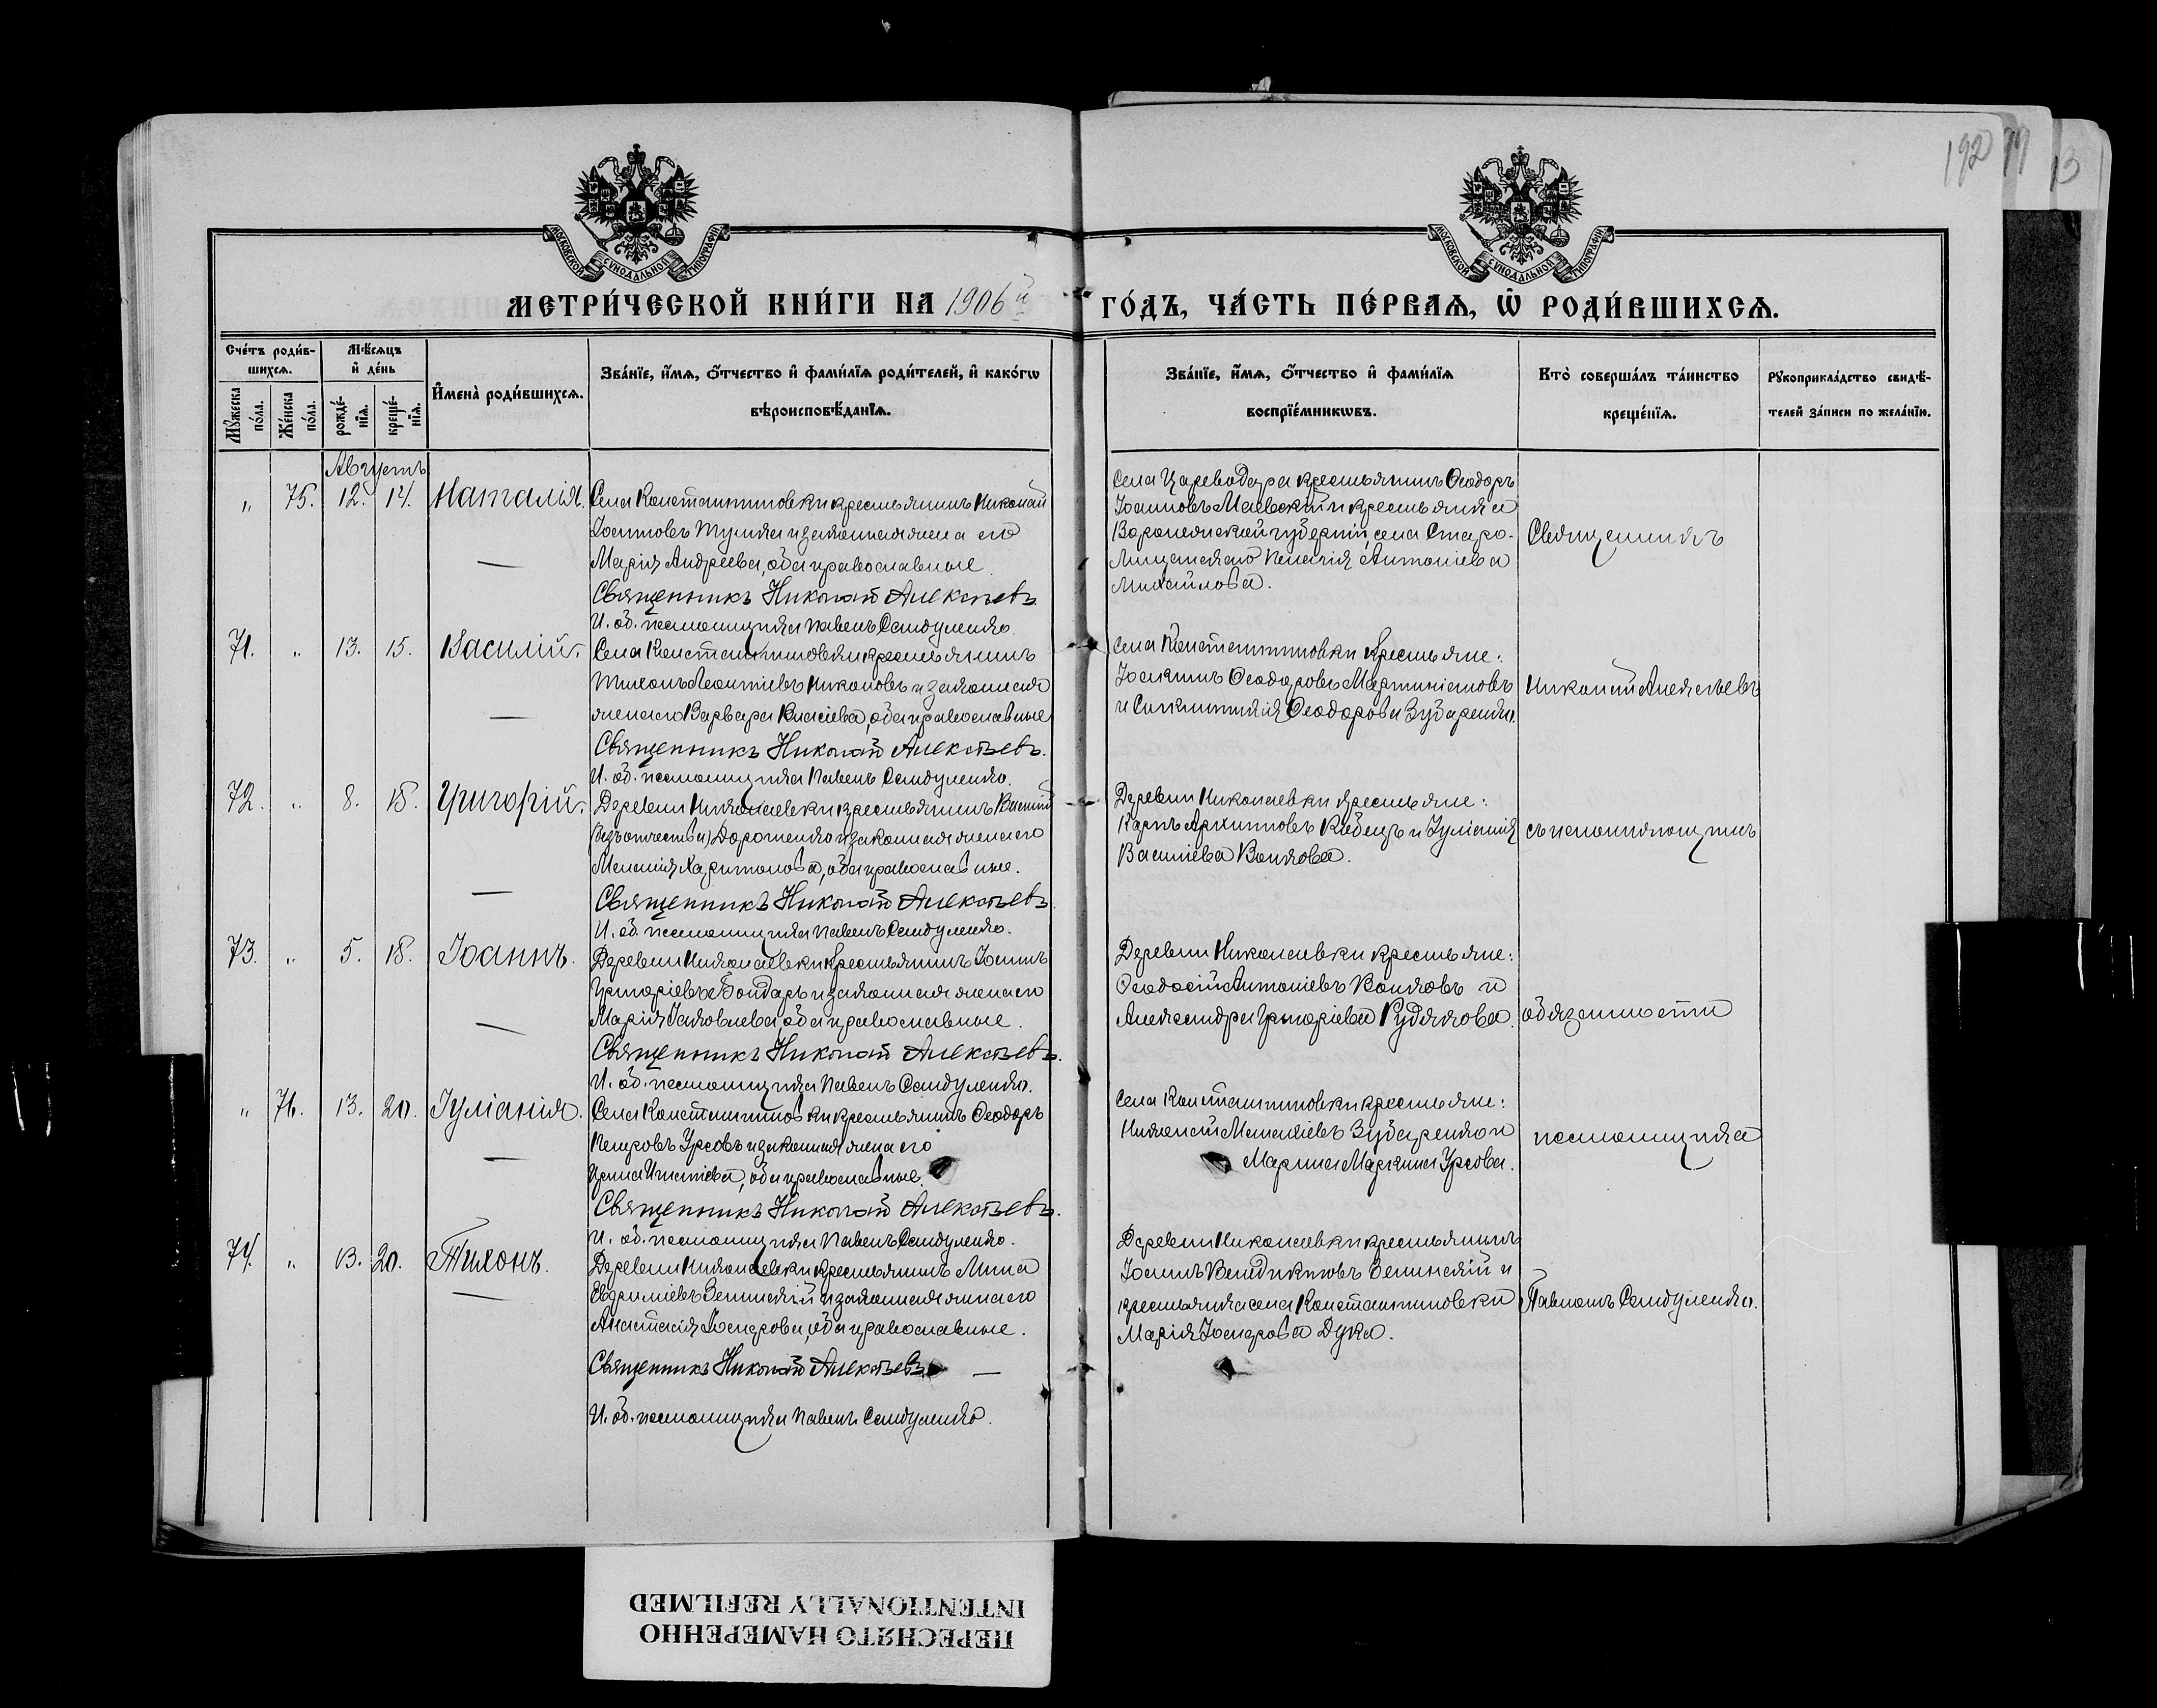 192
МОСКОВСКОЙ СУНОДАЛЬНОЙ ТИПОГРАФІИ
МОСКОВСКОЙ СУНОДАЛЬНОЙ ТИПОГРАФІИ
МЕТРИ́ЧЕСКОЙ КНИ́ГИ НА 1906й ГО́ДЪ, ЧА́СТЬ ПЕ́РВАЯ, Ѡ҆ РОДИ́ВШИХСЯ.
Сче́тъ роди́в-
шихся.
Му́жеска по́ла.
Же́нска по́ла.
Мѣ́сяцъ
и҆ де́нь
рожде́-
нїя.
креще́-
нїя.
И҆мена̀ роди́вшихся.
Зва́нїе, и҆́мя, ѻ҆́тчество и҆ фами́лїя роди́телей, и҆ како́гѡ
вѣроисповѣ́данїя.
Зва́нїе, и҆́мя, ѻ҆́тчество и҆ фами́лїя
воспрїе́мникѡвъ.
Кто̀ соверша́лъ та́инство
креще́нїя.
Рꙋкоприкла́дство свидѣ́-
телей за́писи по жела́нїю.
Августъ
„ 75. 12. 14. Наталія.
Села Константиновки крестьянинъ Николай
Іоанновъ и законная жена его
Марія Андреева, оба православные.
Священникъ Николай Алексѣевъ.
И. об. псаломщика Павелъ Сандуленко.
Села Цареводара крестьянинъ Ѳеодоръ
Іоанновъ Маевскій и крестьянка
Воронежской губерніи, села Старо-
Пелагія Антоніева
Михайлова.
Священникъ
71. „ 13. 15. Василій.
Села Константиновки крестьянинъ
Тихонъ Леонтіевъ Никоновъ и законная
жена его Варвара Власіева, оба православные
Священникъ Николай Алексѣевъ.
И. об. псаломщика Павелъ Сандуленко.
Села Константиновки крестьяне:
Іоакимъ Ѳеодоровъ Мартиніановъ
и Ѳеодорова Зубаренко.
Николай Алексѣевъ
72. „ 8. 18. Григорій.
Деревни Николаевки крестьянинъ Василій
(безъ отчества) Дороженко и законная жена его
Меланія Харитонова, оба православные.
Священникъ Николай Алексѣевъ
И. об. псаломщика Павелъ Сандуленко.
Деревни Николаевки крестьяне:
Карпъ Архиповъ и Іуліанія
Василіева Волкова.
съ исполняющимъ
73. „ 5. 18. Іоаннъ.
Деревни Николаевки крестьянинъ Іоаннъ
Григоріевъ Бондарь и законная жена его
Марія Іаковлева, оба православные.
Священникъ Николай Алексѣевъ.
И. об. псаломщика Павелъ Сандуленко.
Деревни Николаевки крестьяне:
Ѳеодосій Антоніевъ Волковъ и
Александра Григоріева Рудякова.
обязанности
„ 76. 13. 20. Іуліанія.
Села Константиновки крестьянинъ Ѳеодоръ
Петровъ Урсовъ и законная жена его
Ирина Игнатіева, оба православные.
Священникъ Николай Алексѣевъ.
И. об. псаломщика Павелъ Сандуленко.
Села Константиновки крестьяне:
Николай Зубаренко и
Марина Маркина Урсова.
псаломщика
74. „ 13. 20. Тихонъ.
Деревни Николаевки крестьянинъ Мина
Евфиміевъ Зелинскій и законная жена его
Анастасія Іосифова, оба православные.
Священникъ Николай Алексѣевъ. —
И. об. псаломщика Павелъ Сандуленко.
Деревни Николаевки крестьянинъ
Іоаннъ Венедиктовъ Зелинскій и
крестьянка села Константиновки
Марія Іосифова Дука.
Павломъ Сандуленко.
ПЕРЕСНЯТО НАМЕРЕННО
INTENTIONALLY REFILMED